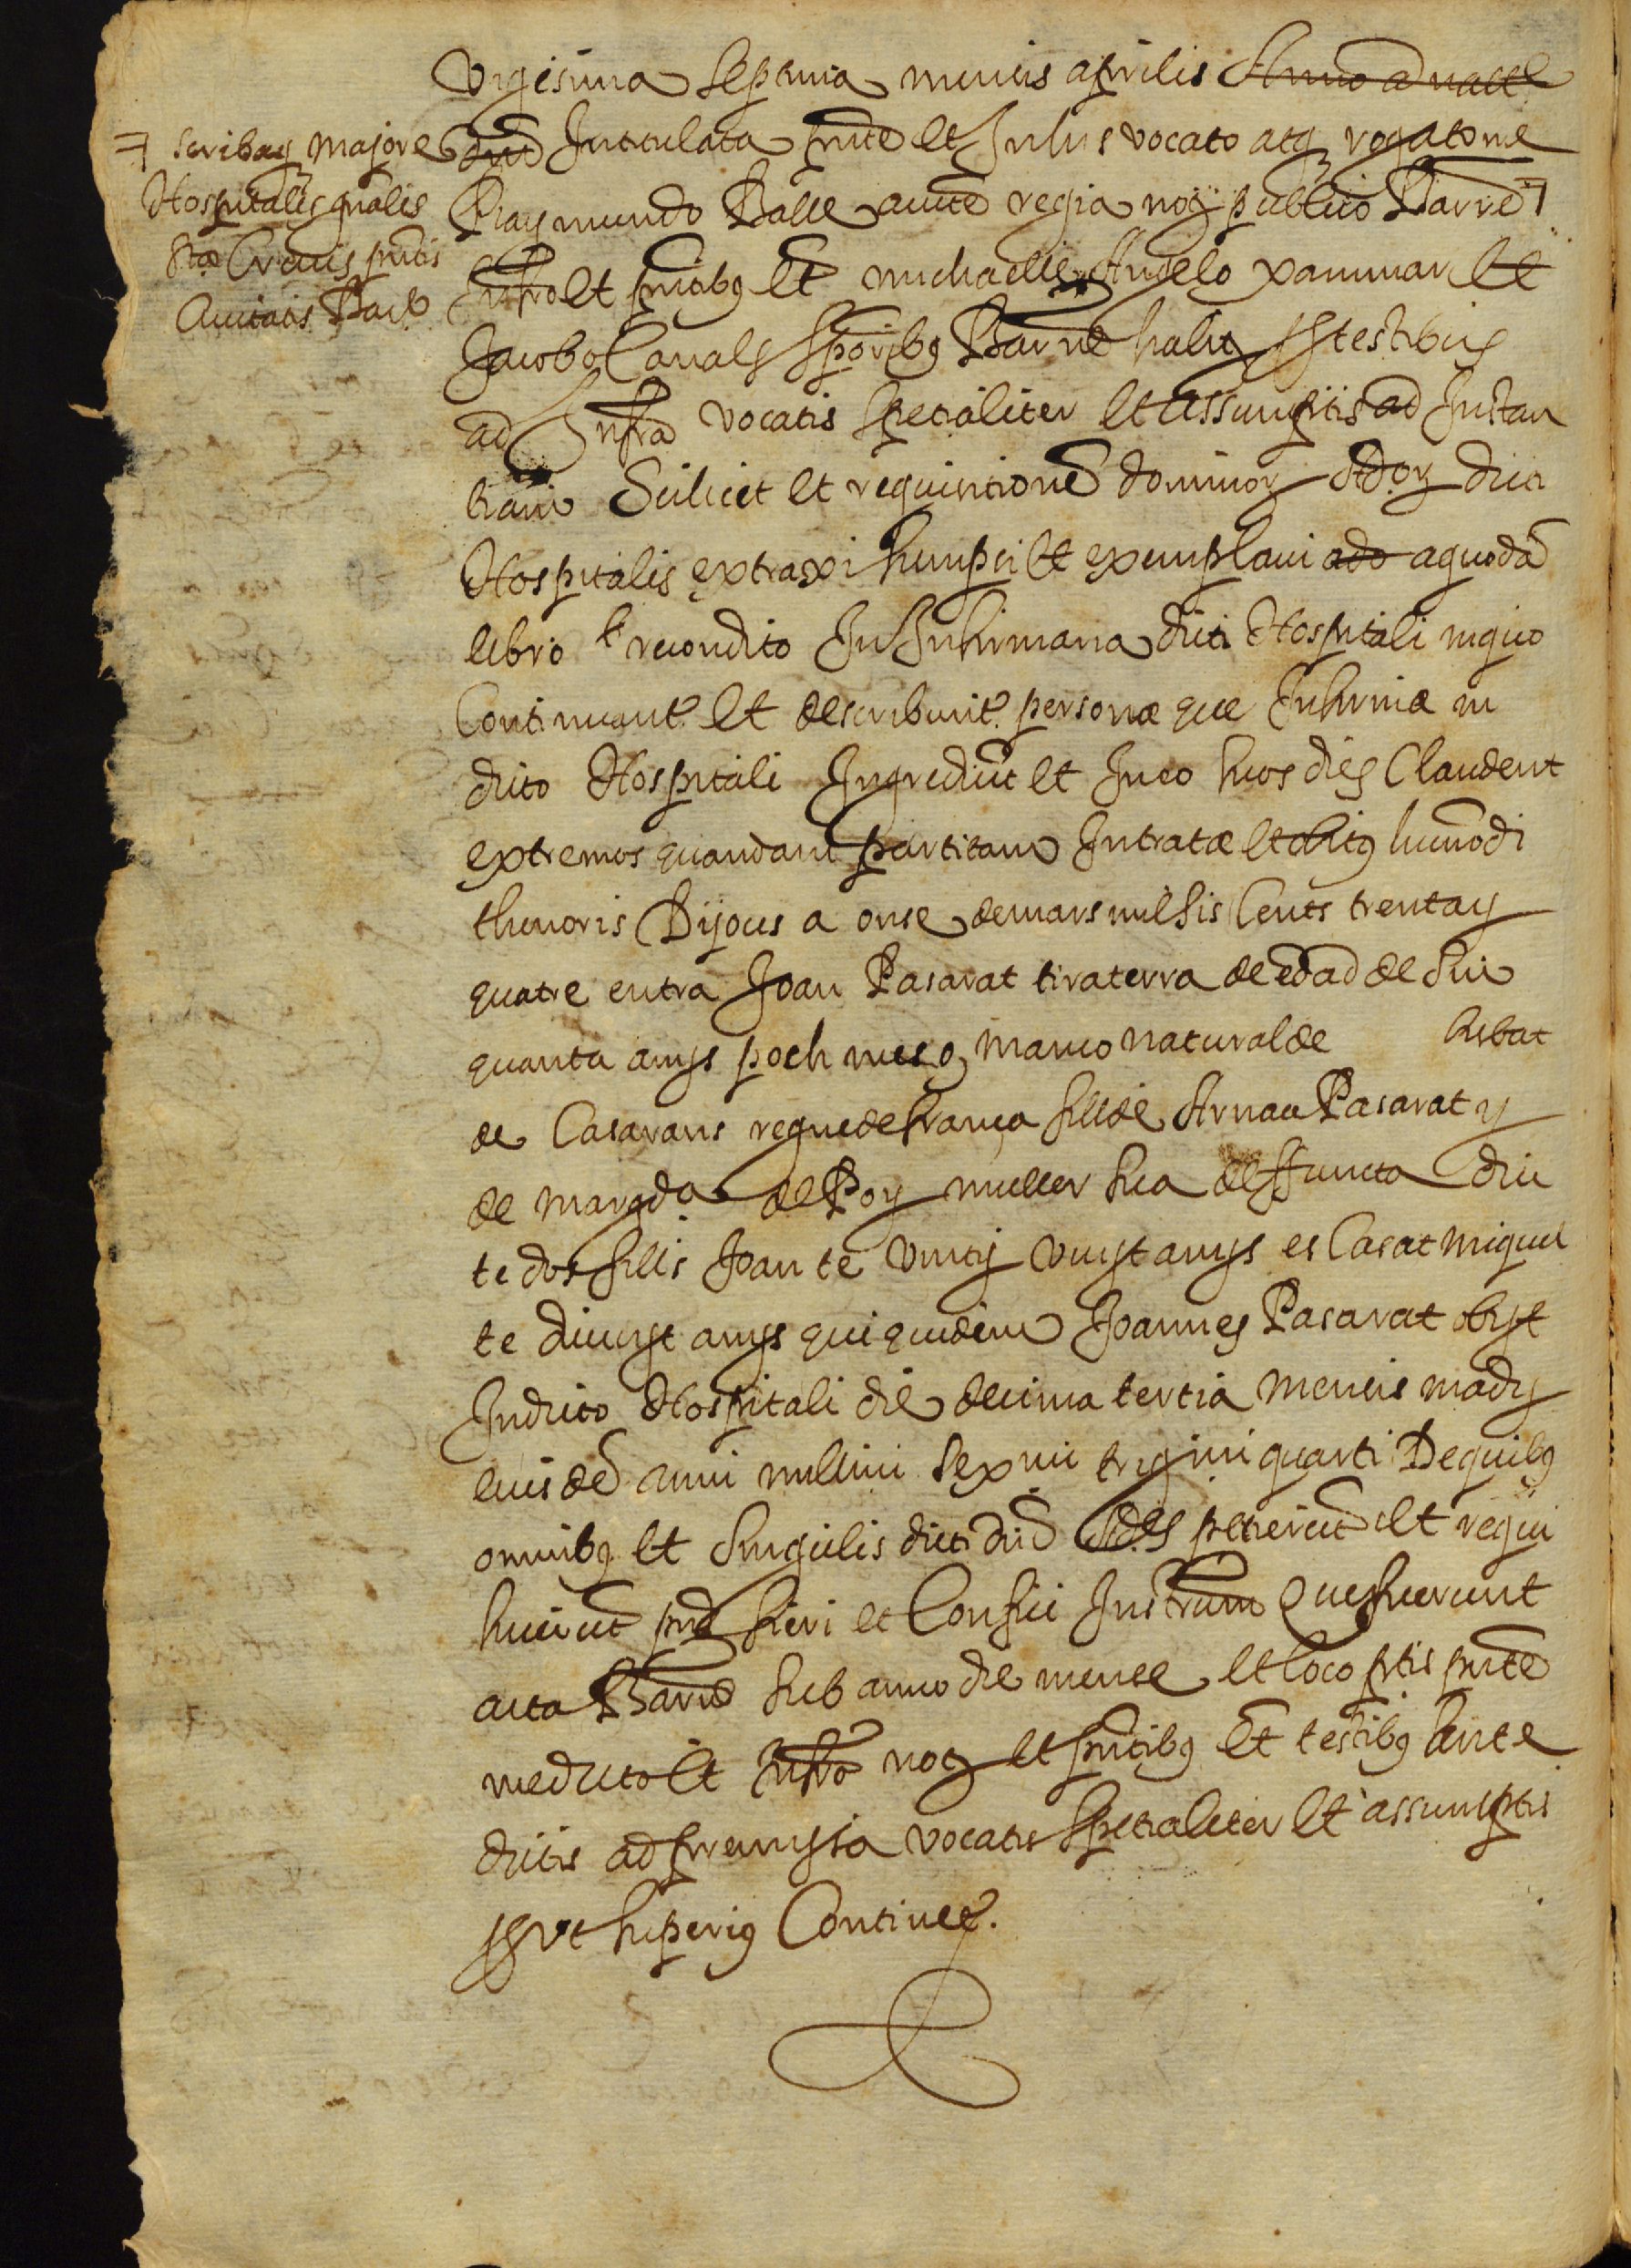 Vigesima septima mensis aprilis Anno a nati
⁊ scribaq majore
Hospitalis gnalis
Stae Crucis pntis
Civitatis Barne
dnd Intitulata pnte et Infrius vocato atq rogato me
Raymundo Balle aucte regia noty publico Barne ⁊
Infro et pntibq et michaelle Angelo xammar et
Jacobo Canals scriptoribq Barne habitq testibus
ad Infra vocatis spetialiter et assumptis ad Instan
tiam Scilicet et requisitione dominor Ador dicti
Hospitalis extraxi sumpsi et exemplavi ado a quoda
libro recondito In Infirmaria dicti Hospitali in quo
Continuant et describunt personae que Infirmae in
dicto Hospitali Ingrediut et In eo suos dies Claudent
extremos quandam partitam Intratae et obitq huiusmodi
thenoris Dijous a onse de mars mil sis Cents trentay
quatre entra Joan Pasarat tiraterra de edad de sin
quanta anys poch mes o manco natural de bisbat
de Casarans regne de franca fill de Arnau Pasarat y
de margda de Poy muller sua deffuncta diu
te dos fills Joan te vinty vuyt anys es Casat miquel
te divuyt anys qui quidem Joannes Pasarat obijt
In dicto Hospitali die decima tertia mensis madij
eiusde anni millmi sexmi trigmi quarti De quibq
omnibq et singulis dicti dni Ades petierut et requi
siuerut pns fieri et Confici Instrum Que fuerunt
acta Barne sub anno die mense et loco ptis pnte
me dicto et Infro noty et pntibq et testibq ante
dictis ad premissa vocatis spetialiter et assumptis
prout superiq Continet.